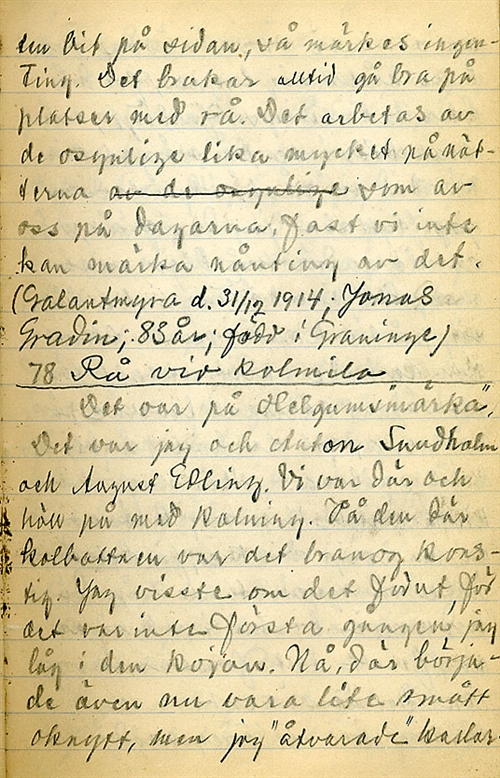 en bit på sidan, så märkes ingen-
ting. Det brukar alltid gå bra på
platser med rå. Det arbetas av
de osynlige lika mycket på nät-
terna av de osynlige som av
oss på dagarna, fast vi inte
kan märka nånting av det.
(Galantmyra d. 31/12 1914; Jonas
Gradin; 83 år; född i Graninge)
78 Rå vid kolmila
Det var på Helgums"märka".
Det var jag och Anton Sundholm
och August Edling. Vi var där och
höll på med kolning. På den där
kolbottnen var det branog kons-
tig. Jag visste om det förut, för
det var inte första gången jag
låg i den kojan. Nå, där börja-
de även nu vara lite smått
oknytt, men jag "åtvarade" karlar-